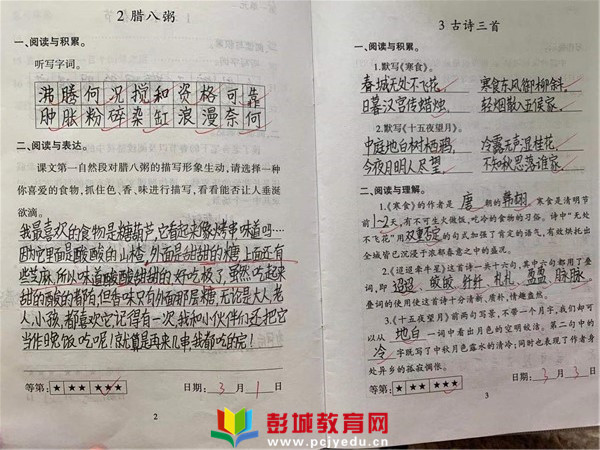 2 腊八粥
一、阅读与积累。
听写字词。
沸腾何况搅和资格可靠
肿胀粉碎染缸浪漫奈何
二、阅读与表达。
课文第一自然段对腊八粥的描写形象生动,请选择一种
你喜爱的食物,抓住色、香、味进行描写,看看能否让人垂涎
欲滴。
我最喜欢的食物是糖葫芦,它看起来像烤串味道吗……
因为它里面是酸酸的山楂,外面是甜甜的糖,上面还有
些芝麻,所以味道酸酸甜甜的,好吃极了,虽然吃起来
甜的酸的都陌,但香味只有外面那层糖,无论是大人,老
人,小孩,都喜欢它记得有一次,我和小伙伴们还把它
当作晚饭吃呢!就算是再来几串,我都吃的完!
等第:★ ★★ ★★★ 日期:3月1日
2
3 古诗三首
一、阅读与积累。
1.默写《寒食》。
春城无处不飞花, 寒食东风御柳斜。
日暮汉宫传蜡烛, 轻烟散入五侯家。
2.默写《十五夜望月》。
中庭地白树栖鸦, 冷露无声湿桂花。
今夜月明人尽望, 不知秋思落谁家。
二、阅读与理解。
1.《寒食》的作者是 唐 朝的 韩翃 寒食是清明节
前1-2天,有不可生火做饭、吃冷的食物的习俗。诗中“无处
不飞花”用双重否定的句式加强了肯定的语气,有效烘托出
全城皆已沉浸于浓郁春意之中的盛况。
2.《迢迢牵牛星》这首诗一共十六句,其中六句都用了叠
词,即 迢迢、皎皎、纤纤、札札、盈盈、脉脉。
叠词的使用使这首诗十分清新、质朴,情趣盎然。
3.《十五夜望月》前两句写景,不带一个月字,我们却可
以从 地白 一词中看出月色的空明皎洁。第二句中的
冷 字既写了中秋月色露水的清冷;同时也表现了作者身
处异乡的孤寂惆怅。
等第:★ ★★ ★★★ 日期:3月3日
3
彭城教育网
www.pcjyedu.cn